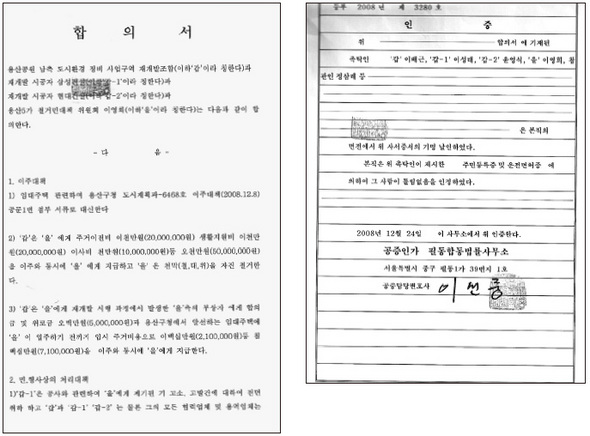 합 의 서
용산공원 남측 도시환경 정비 사업구역 재개발조합(이하'갑'이라 칭한다)과
재개발 시공자 삼성 갑-1'이라 칭한다)과
재개발 시공자 현대건 갑-2'이라 칭한다)과
용산5가 철거민대책 위원회 이영희(이하'을'이라 칭한다)는 다음과 같이 합
의한다.
- 다 음 -
1. 이주대책
1) 임대주택 관련하여 용산구청 도시계획과-6468호 이주대책(2008.12.8)
공문1번 첨부 서류로 대신한다
2) '갑'은 '을' 에게 주거이전비 이천만원(20,000,000원) 생활지원비 이천만
원(20,000,000원) 이사비 천만원(10,000,000원)등 오천만원(50,000,000원)
을 이주와 동시에 '을' 에게 지급하고 '을' 은 천막(철,대,위)을 자진 철거한
다.
3) '갑'은 '을'에게 재개발 시행 과정에서 발생한 '을'측의 부상자 에게 합의
금 및 위로금 오백만원(5,000,000원)과 용산구청에서 알선하는 임대주택에
'을' 이 입주하기 전까지 임시 주거비용으로 이백십만원(2,100,000원)등 칠
백십만원(7,100,000원)을 이주와 동시에 '을'에게 지급한다.
2. 민,형사상의 처리대책
1)'갑-1'은 공사와 관련하여 '을'에게 제기된 기 고소, 고발건에 대하여 전면
취하 하고 '갑'과 '갑-1' '갑-2' 는 물론 그의 모든 협력업체 및 용역업체는
등부 2008 년 제 3280 호
인 증
위 합의서 에 기재된
촉탁인 '갑' 이배근, '갑-1' 이성태, '갑-2' 윤영식, '을' 이영희, 참
관인 정삼례 등
은 본직의
면전에서 위 사서증서의 기명 날인하였다.
본직은 위 촉탁인이 제시한 주민등록증 및 운전면허증 에
의하여 그 사람이 틀림없음을 인정하였다.
2008년 12월 24일 이 사무소에서 위 인증한다.
공증인가 필동합동법률사무소
서울특별시 중구 필동1가 39번지 1호
공증담당변호사 이 선 중